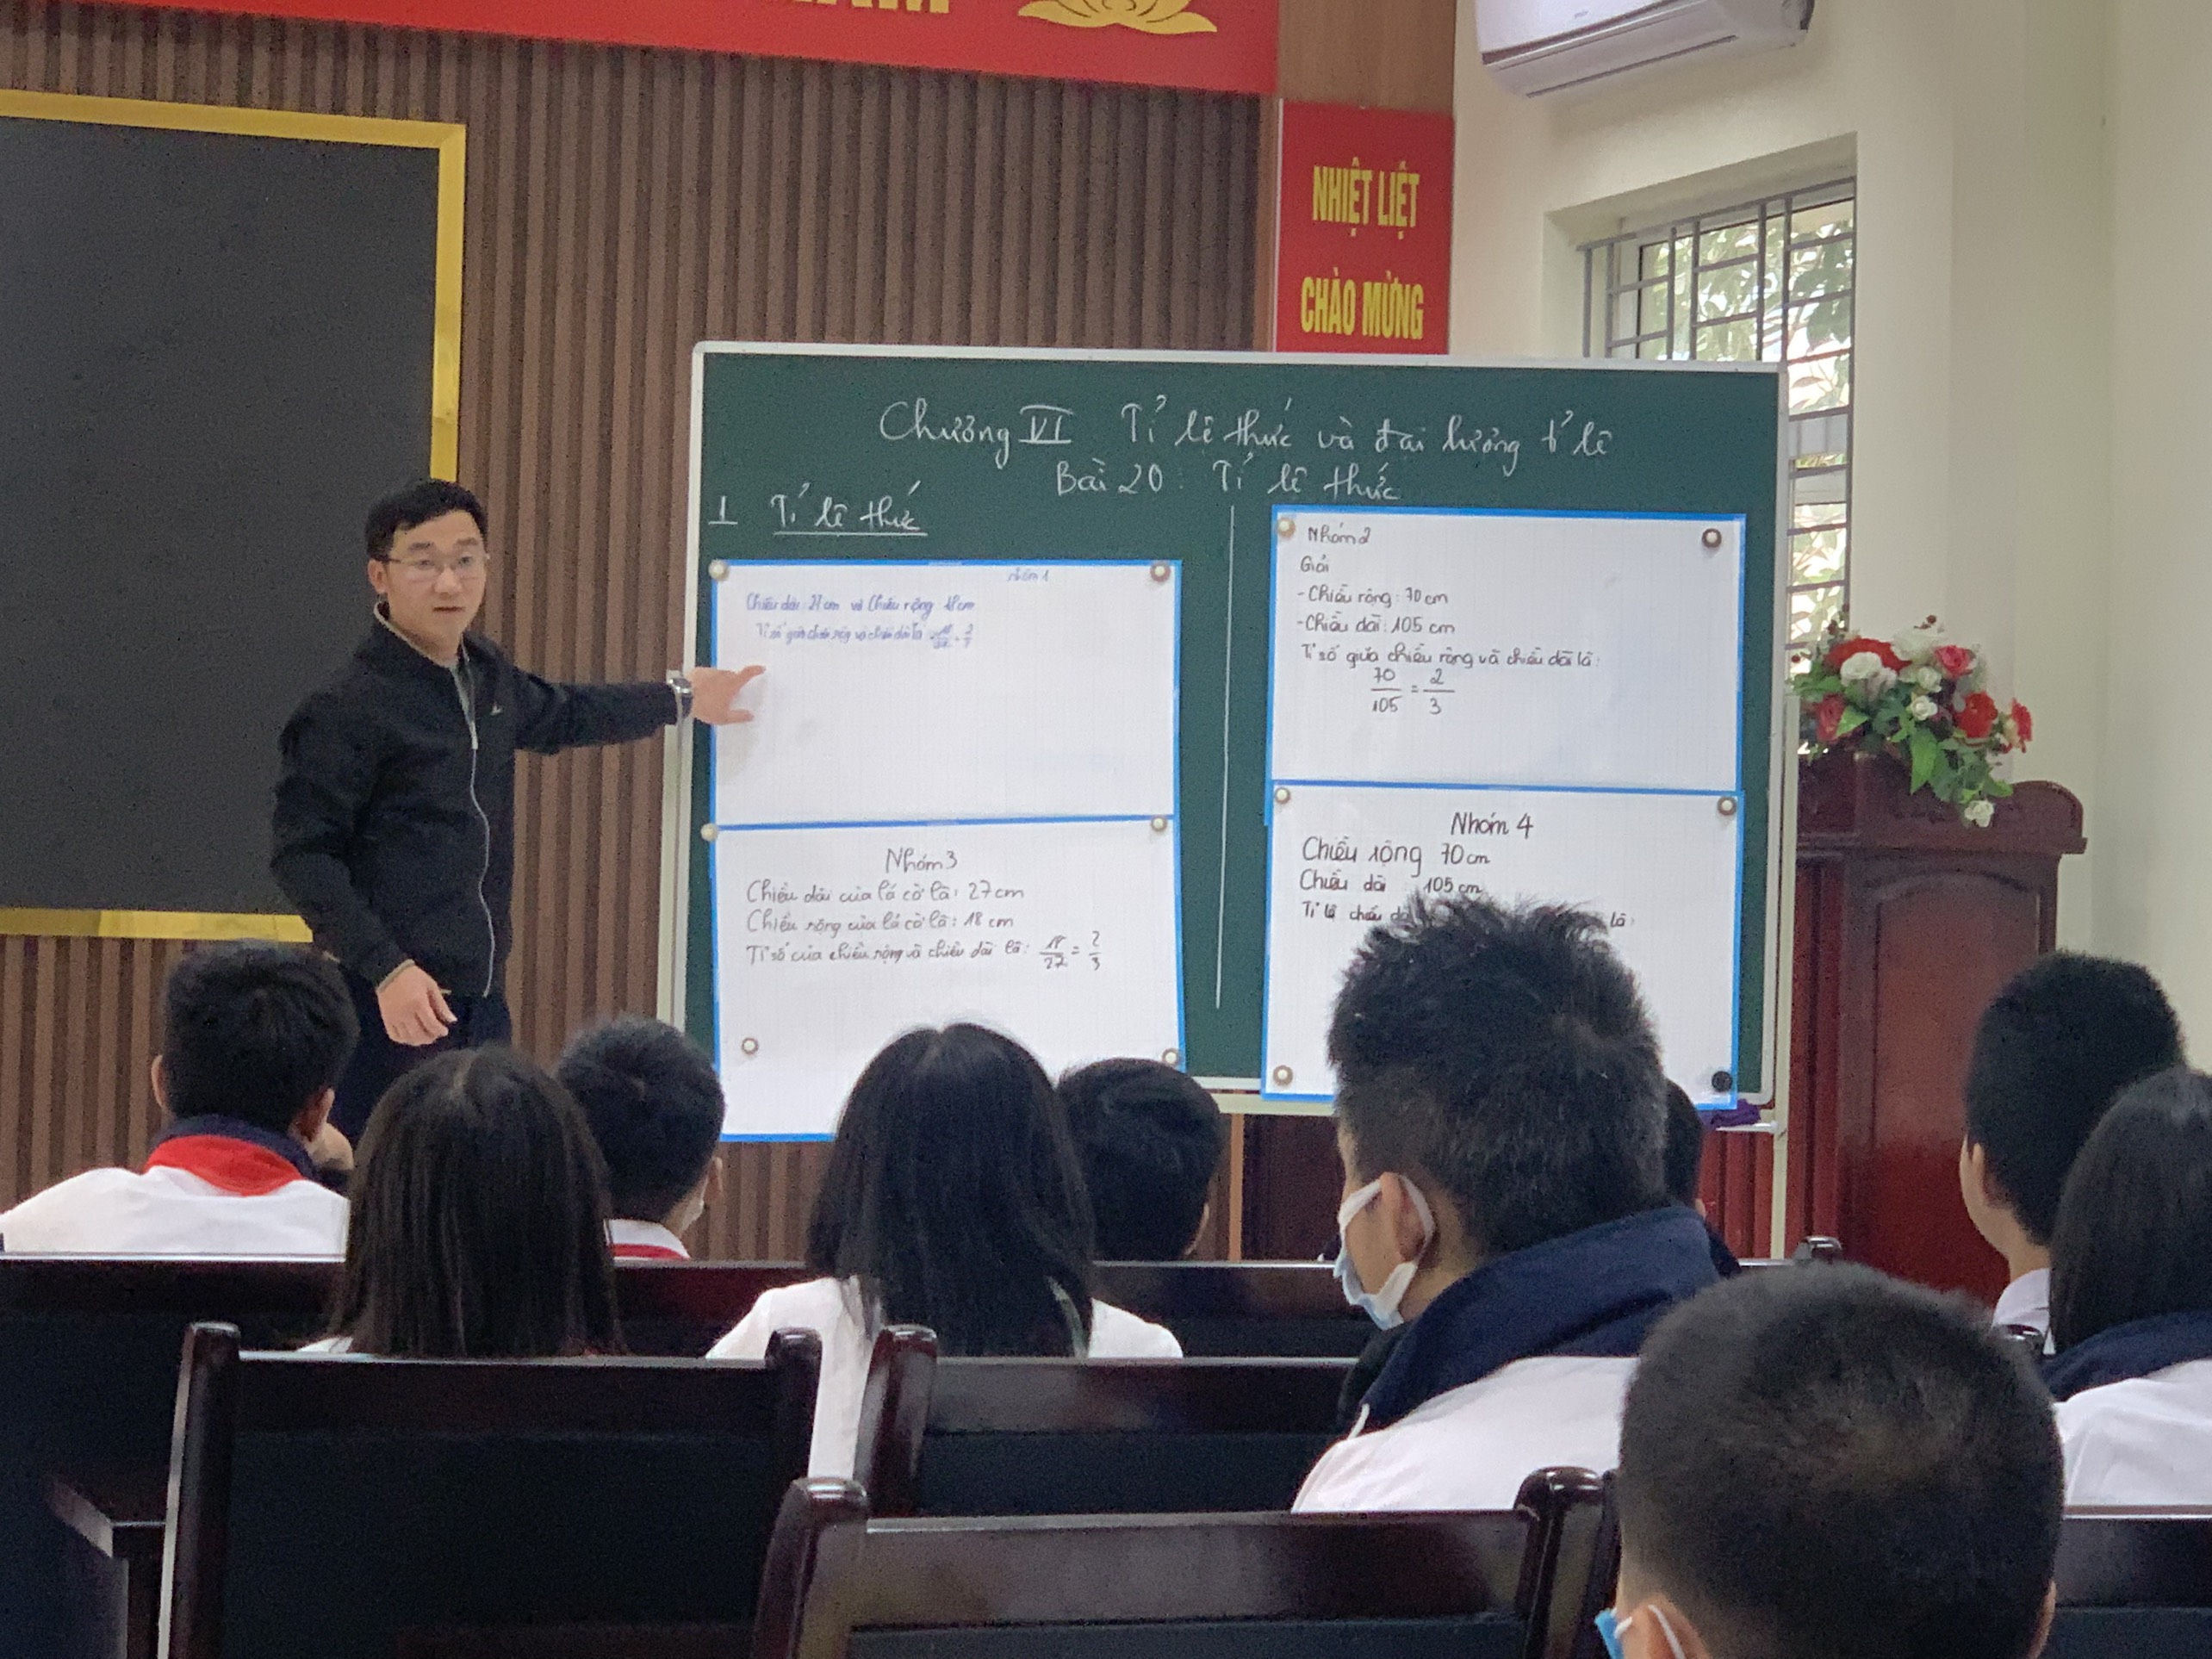 NHIỆT LIỆT
CHÀO MỪNG
Chương VI Tỉ lệ thức và đại lượng tỉ lệ
Bài 20: Tỉ lệ thức
1 Tỉ lệ thức
nhóm 1
Chiều dài: 27cm và Chiều rộng 18cm
Tỉ số giữa chiều rộng và chiều dài là 18/27 = 2/3
Nhóm 3
Chiều dài của lá cờ là: 27cm
Chiều rộng của lá cờ là: 18 cm
Tỉ số của chiều rộng và chiều dài là: 18/27 = 2/3
Nhóm 2
Giải
- Chiều rộng: 70cm
- Chiều dài: 105 cm
Tỉ số giữa chiều rộng và chiều dài là:
70/105 = 2/3
Nhóm 4
Chiều rộng 70cm
Chiều dài 105cm
Tỉ lệ chiều là: